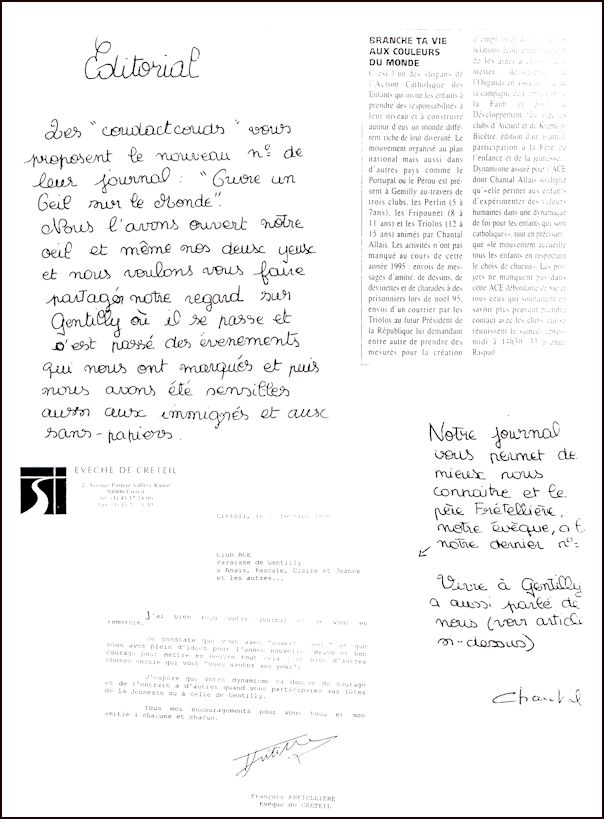 Editorial
Les "coudactcouds" vous
proposent le nouveau n° de
leur journal : "Ouvre un
Oeil sur le Monde".
Nous l'avons ouvert notre
oeil et même nos deux yeux
et nous voulons vous faire
partager notre regard sur
Gentilly où il se passe et
s'est passé des évenements
qui nous ont marqués et puis
nous avons été sensibles
aussi aux immigrés et aux
sans-papiers.
BRANCHE TA VIE
AUX COULEURS
DU MONDE
C'est l'un des slogans de
l'Action Catholique des
Enfants qui invite les enfants à
prendre des responsabilités à
leur niveau et à construire
autour d'eux un monde diffé-
rent riche de leur diversité. Le
mouvement organisé au plan
national mais aussi dans
d'autres pays comme le
Portugal ou le Pérou est pré-
sent à Gentilly au-travers de
trois clubs, les Perlin (5 à
7ans), les Fripounet (8 à
11 ans) et les Triolos (12 à
15 ans) animés par Chantal
Allais. Les activités n'ont pas
manqué au cours de cette
année 1995 : envois de mes-
sages d'amitié, de dessins, de
devinettes et de charades à des
prisonniers lors de noël 95,
envoi d'un courrier par les
Triolos au futur Président de
la République lui demandant
entre autre de prendre des
mesures pour la création
d'emplois et
relations école
de les aider à
métier,
l'Ouganda en association avec
la campagne du
la Faim et pour le
Développement,
clubs d'Arcueil et du Kremlin
Bicêtre, édition d'un journal,
participation à la Fête de
l'enfance et de la jeunesse.
Dynamisme assuré pour l'ACE
dont Chantal Allais souligne
qu'«elle permet aux enfants
d'expérimenter des valeurs
humaines dans une dynamique
de foi pour les enfants qui sont
catholiques», tout en précisant
que «le mouvement accueille
tous les enfants en respectant
le choix de chacun». Les pro-
jets ne manquent pas dans
cette ACE débordante de vie et
tous ceux qui souhaitent en
savoir plus peuvent prendre
contact avec les clubs qui se
réunissent le samedi après-
midi à 14h30, 33 avenue
Raspail.
Notre journal
vous permet de
mieux nous
connaître et le
père Frétellière,
notre évêque, a l
notre dernier n°:
Vivre à Gentilly
a aussi parlé de
nous (voir article
ci-dessus)
Chantal
EVECHE DE CRETEIL
2, Avenue Pasteur Vallery-Radot
94000 Créteil
Créteil, le
Club ACE
Paroisse de Gentilly
à Anaïs, Pascale, Claire et Jeanne
et les autres...
J'ai bien reçu votre journal et vous en
remercie.
Je constate que vous avez "ouvert l'oeil" et que
vous avez plein d'idées pour l'année nouvelle. Bravo et bon
courage pour mettre en oeuvre tout cela et bien d'autres
choses encore qui vont "vous sauter aux yeux".
J'espère que votre dynamisme va donner du courage
et de l'entrain à d'autres quand vous participerez aux fêtes
de la Jeunesse ou à celle de Gentilly.
Tous mes encouragements pour vous tous et mon
amitié à chacune et chacun.
François FRETELLIERE
Evêque de CRETEIL